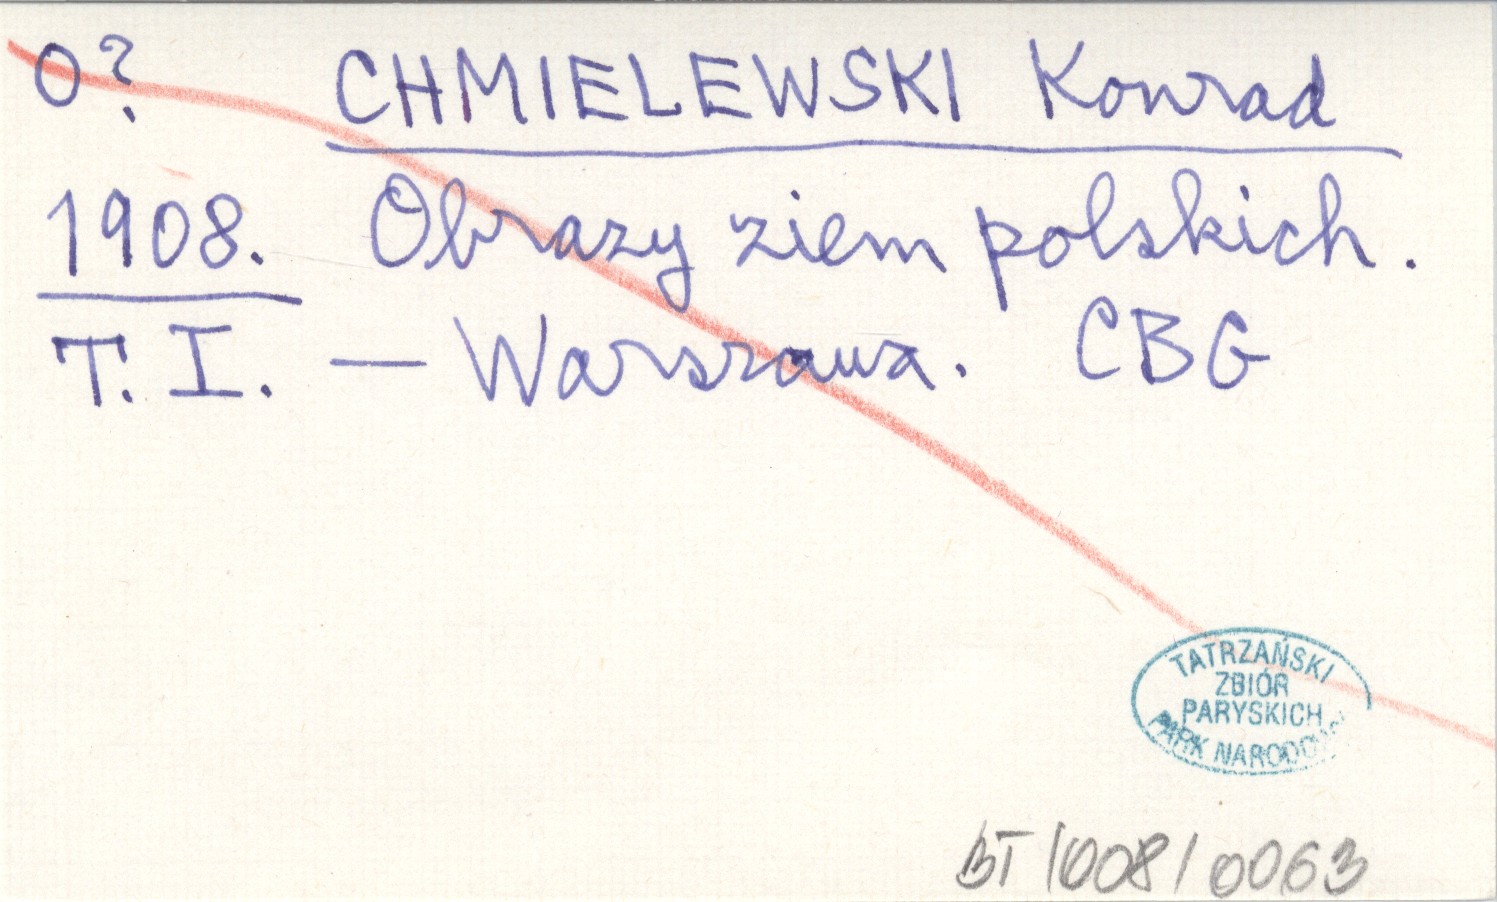 O? CHMIELEWSKI Konrad
1908. Obrazy ziem polskich.
T. I. — Warszawa. CBG
TATRZAŃSKI
ZBIÓR
PARYSKICH
PARK NARODOWY
BT/008/0063